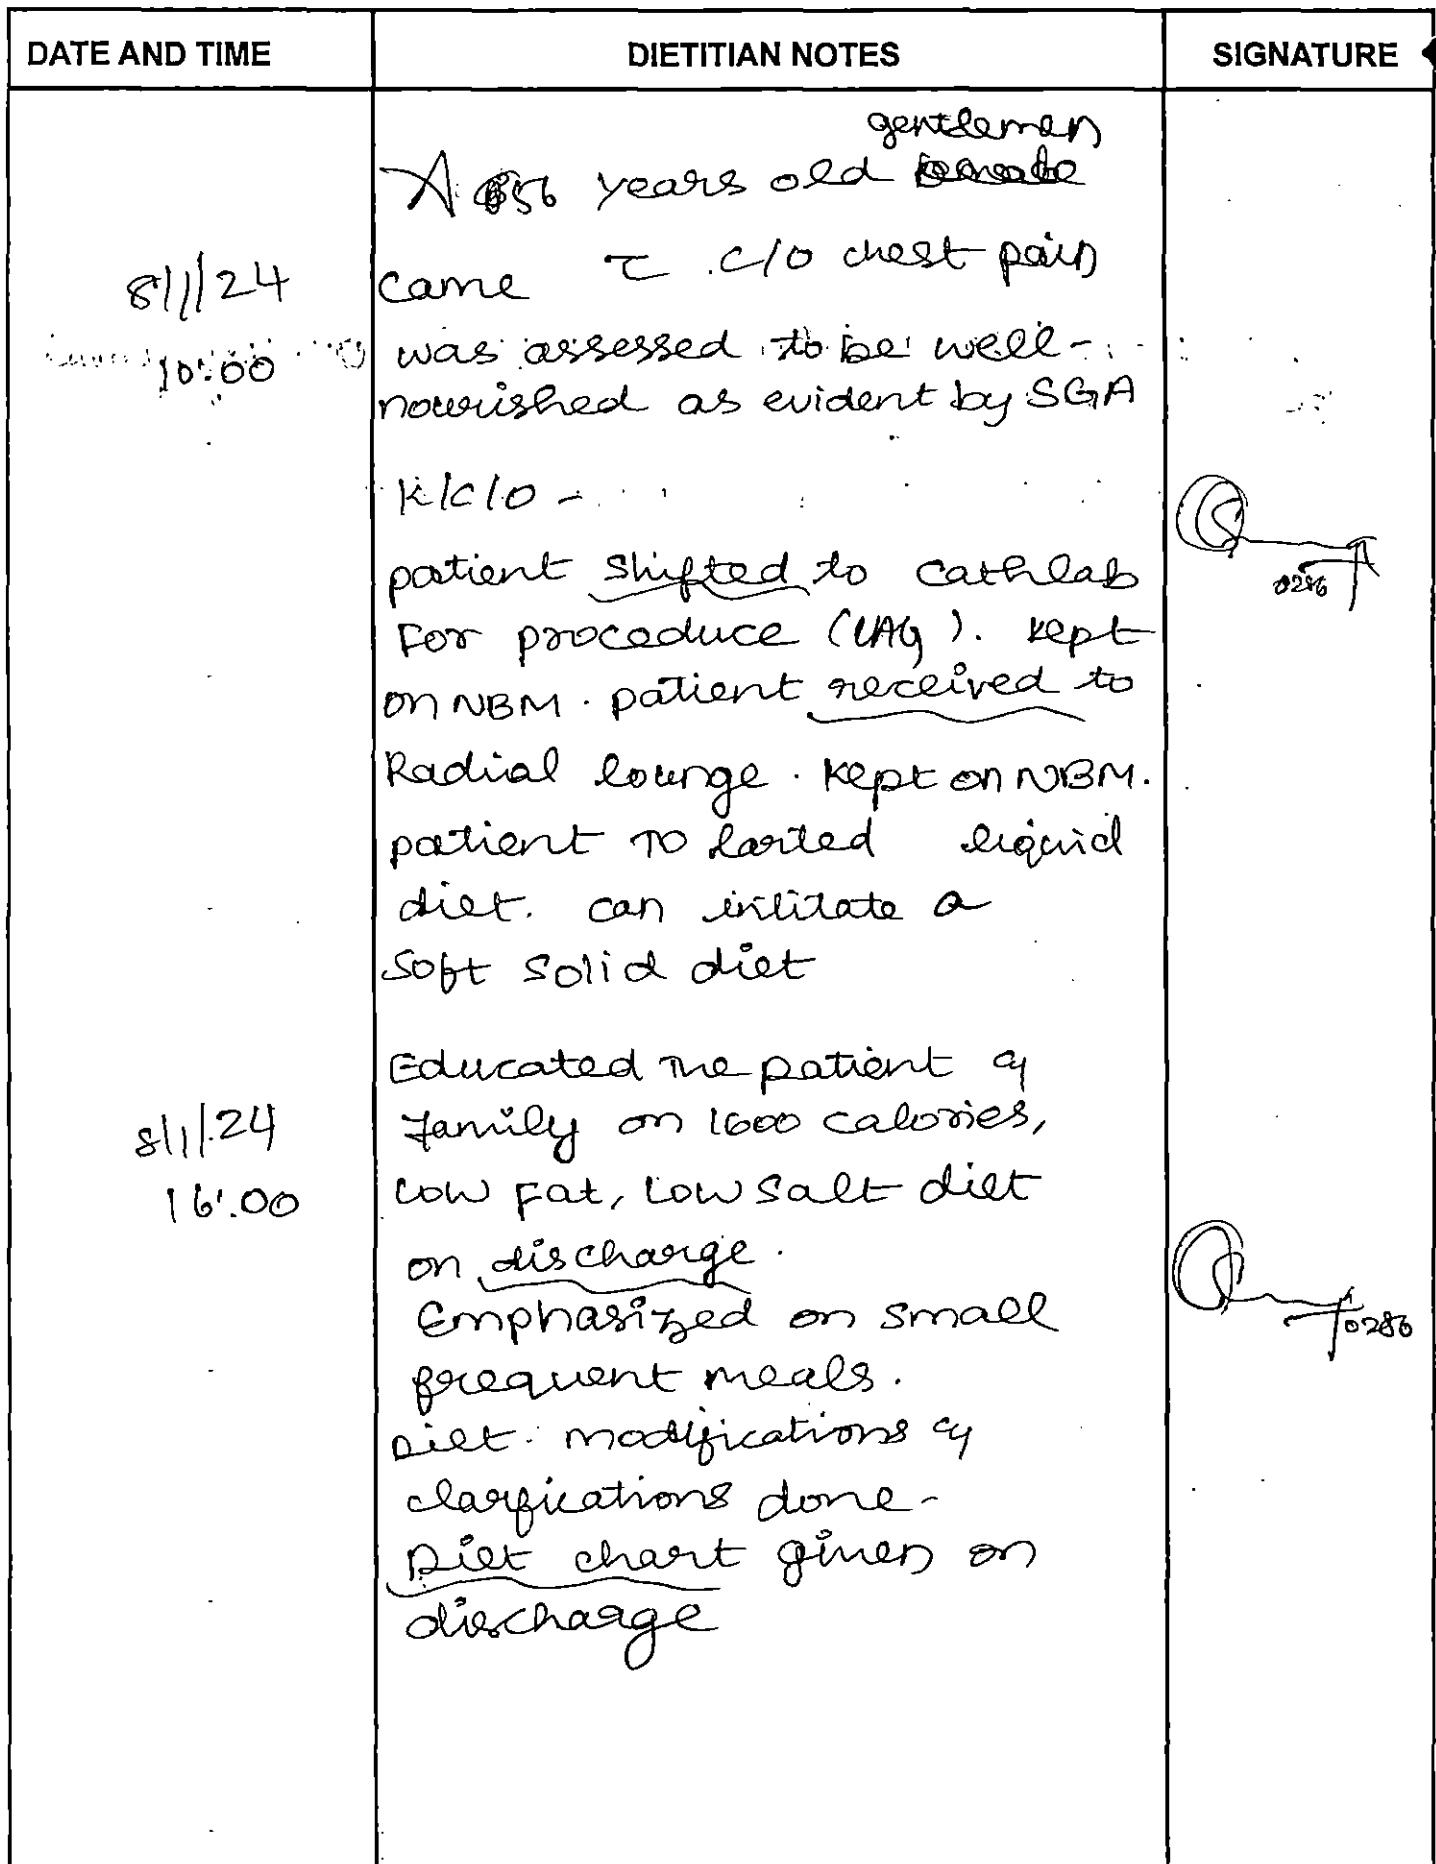 DATE AND TIME DIETITIAN NOTES SIGNATURE
gentleman
A 56 years old
8/1/24 came c̄ c/o chest pain
10:00 was assessed to be well-
nourished as evident by SGA
K/C/O -
patient shifted to cathlab
0286
For proceduce (CAG). kept
on NBM. patient received to
Radial lounge. kept on NBM.
patient TO larted liquid
diet. can initiate a
soft solid diet
Educated the patient &
8/1/24 family on 1600 calories,
16:00 low fat, low salt diet
on discharge.
Emphasized on small
0286
frequent meals.
Diet modifications &
clarfications done-
Diet chart given on
discharge